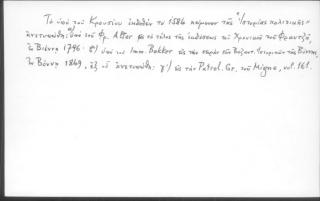 Τὸ ὑπὸ τοῦ Κρουσίου ἐκδοθὲν τῷ 1584 κείμενον τῆς "Ἱστορίας πολιτικῆς"
ἀνετυπώθη: α) ὑπὸ τοῦ Φρ. Alter ἐν τῷ τέλος τῆς ἐκδόσεως τοῦ Χρονικοῦ τοῦ Φραντζῆ,
ἐν Βιέννῃ 1796· β) ὑπὸ τοῦ Imm. Bekker εἰς τὴν σειρὰν τῶν Βυζαντ. Ἱστορικῶν τῆς Βόννης,
ἐν Βόννῃ 1849, ἐξ οὗ ἀνετυπώθη: γ) εἰς τὴν Patrol. Gr. τοῦ Migne, vol. 161.